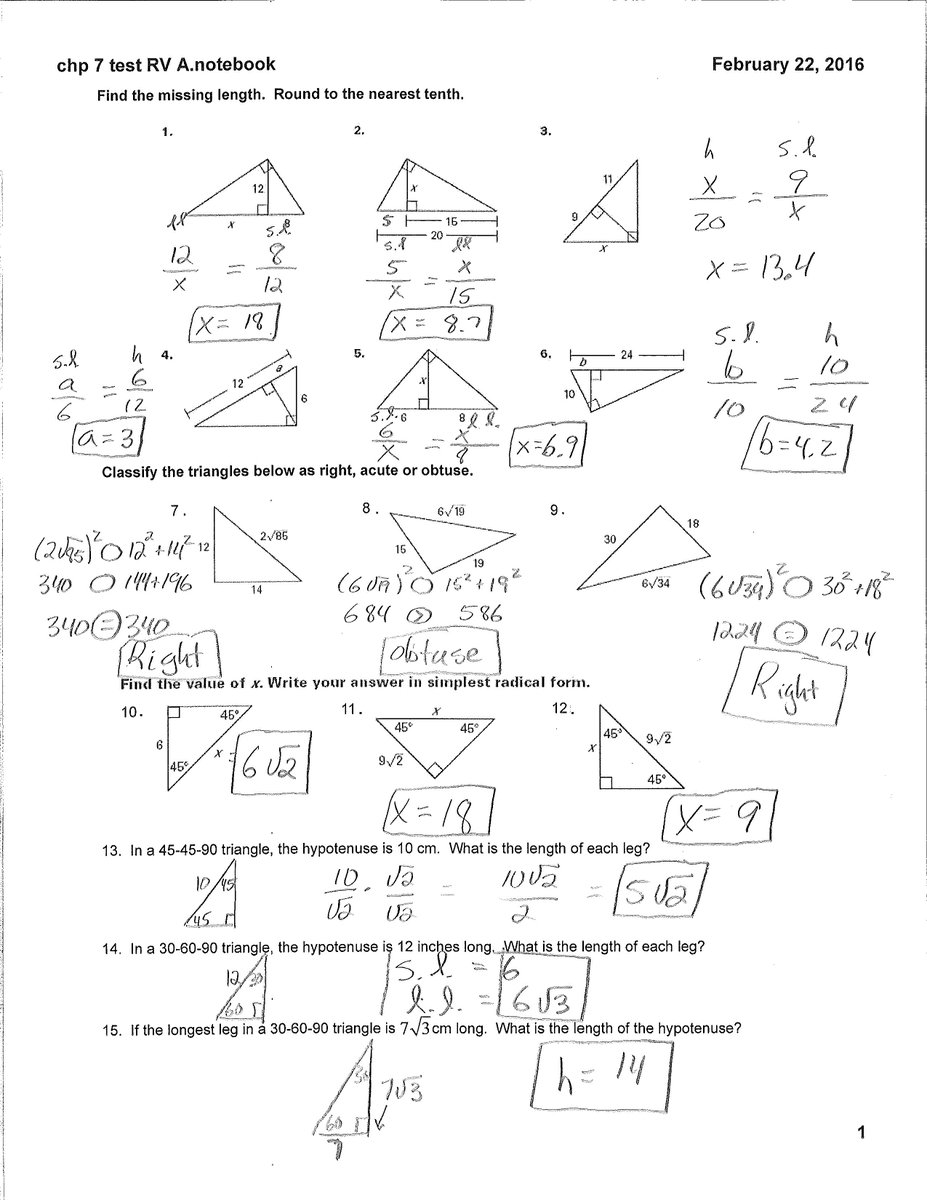 chp 7 test RV A.notebook February 22, 2016
Find the missing length. Round to the nearest tenth.
1. 2. 3.
12 x 8
l.l s.l.
12/x = 8/12
x = 18
x 5 15 20
s.l l.l
5/x = x/15
x = 8.7
11 9 x
h s.l.
x/20 = 9/x
x = 13.4
4. 5. 6.
s.l h
a/6 = 6/12
a = 3
12 a 6
x
s.l. 6 8 l.l.
6/x = x/8
x=6.9
b 24
10
s.l. h
b/10 = 10/24
b=4.2
Classify the triangles below as right, acute or obtuse.
7. 8. 9.
12 2√85 14
(2√85)² ○ 12² + 14²
340 ○ 144+196
340 = 340
Right
6√19 15 19
(6√19)² ○ 15² + 19²
684 > 586
obtuse
30 18 6√34
(6√34)² ○ 30² + 18²
1224 = 1224
Right
Find the value of x. Write your answer in simplest radical form.
10. 11. 12.
45° 6 45° x = 6√2
x 45° 45° 9√2
x = 18
45° 9√2 x 45°
x = 9
13. In a 45-45-90 triangle, the hypotenuse is 10 cm. What is the length of each leg?
10 45 45
10/√2 · √2/√2 = 10√2/2 = 5√2
14. In a 30-60-90 triangle, the hypotenuse is 12 inches long. What is the length of each leg?
12 30 60
s.l. = 6
l.l. = 6√3
15. If the longest leg in a 30-60-90 triangle is 7√3 cm long. What is the length of the hypotenuse?
30 7√3
60
7
h = 14
1